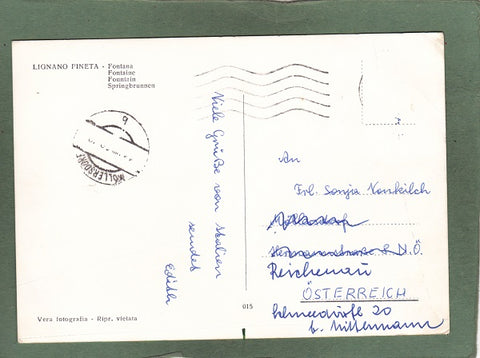 LIGNANO PINETA - Fontana
Fontaine
Fountain
Springbrunnen
WÖLLERSDORF
b
Viele Grüße von Italien
sendet
Edith
An
Frl. Sonja
N.Ö.
Reichenau
ÖSTERREICH
20
b. Mittermann
015
Vera fotografia - Ripr. vietata